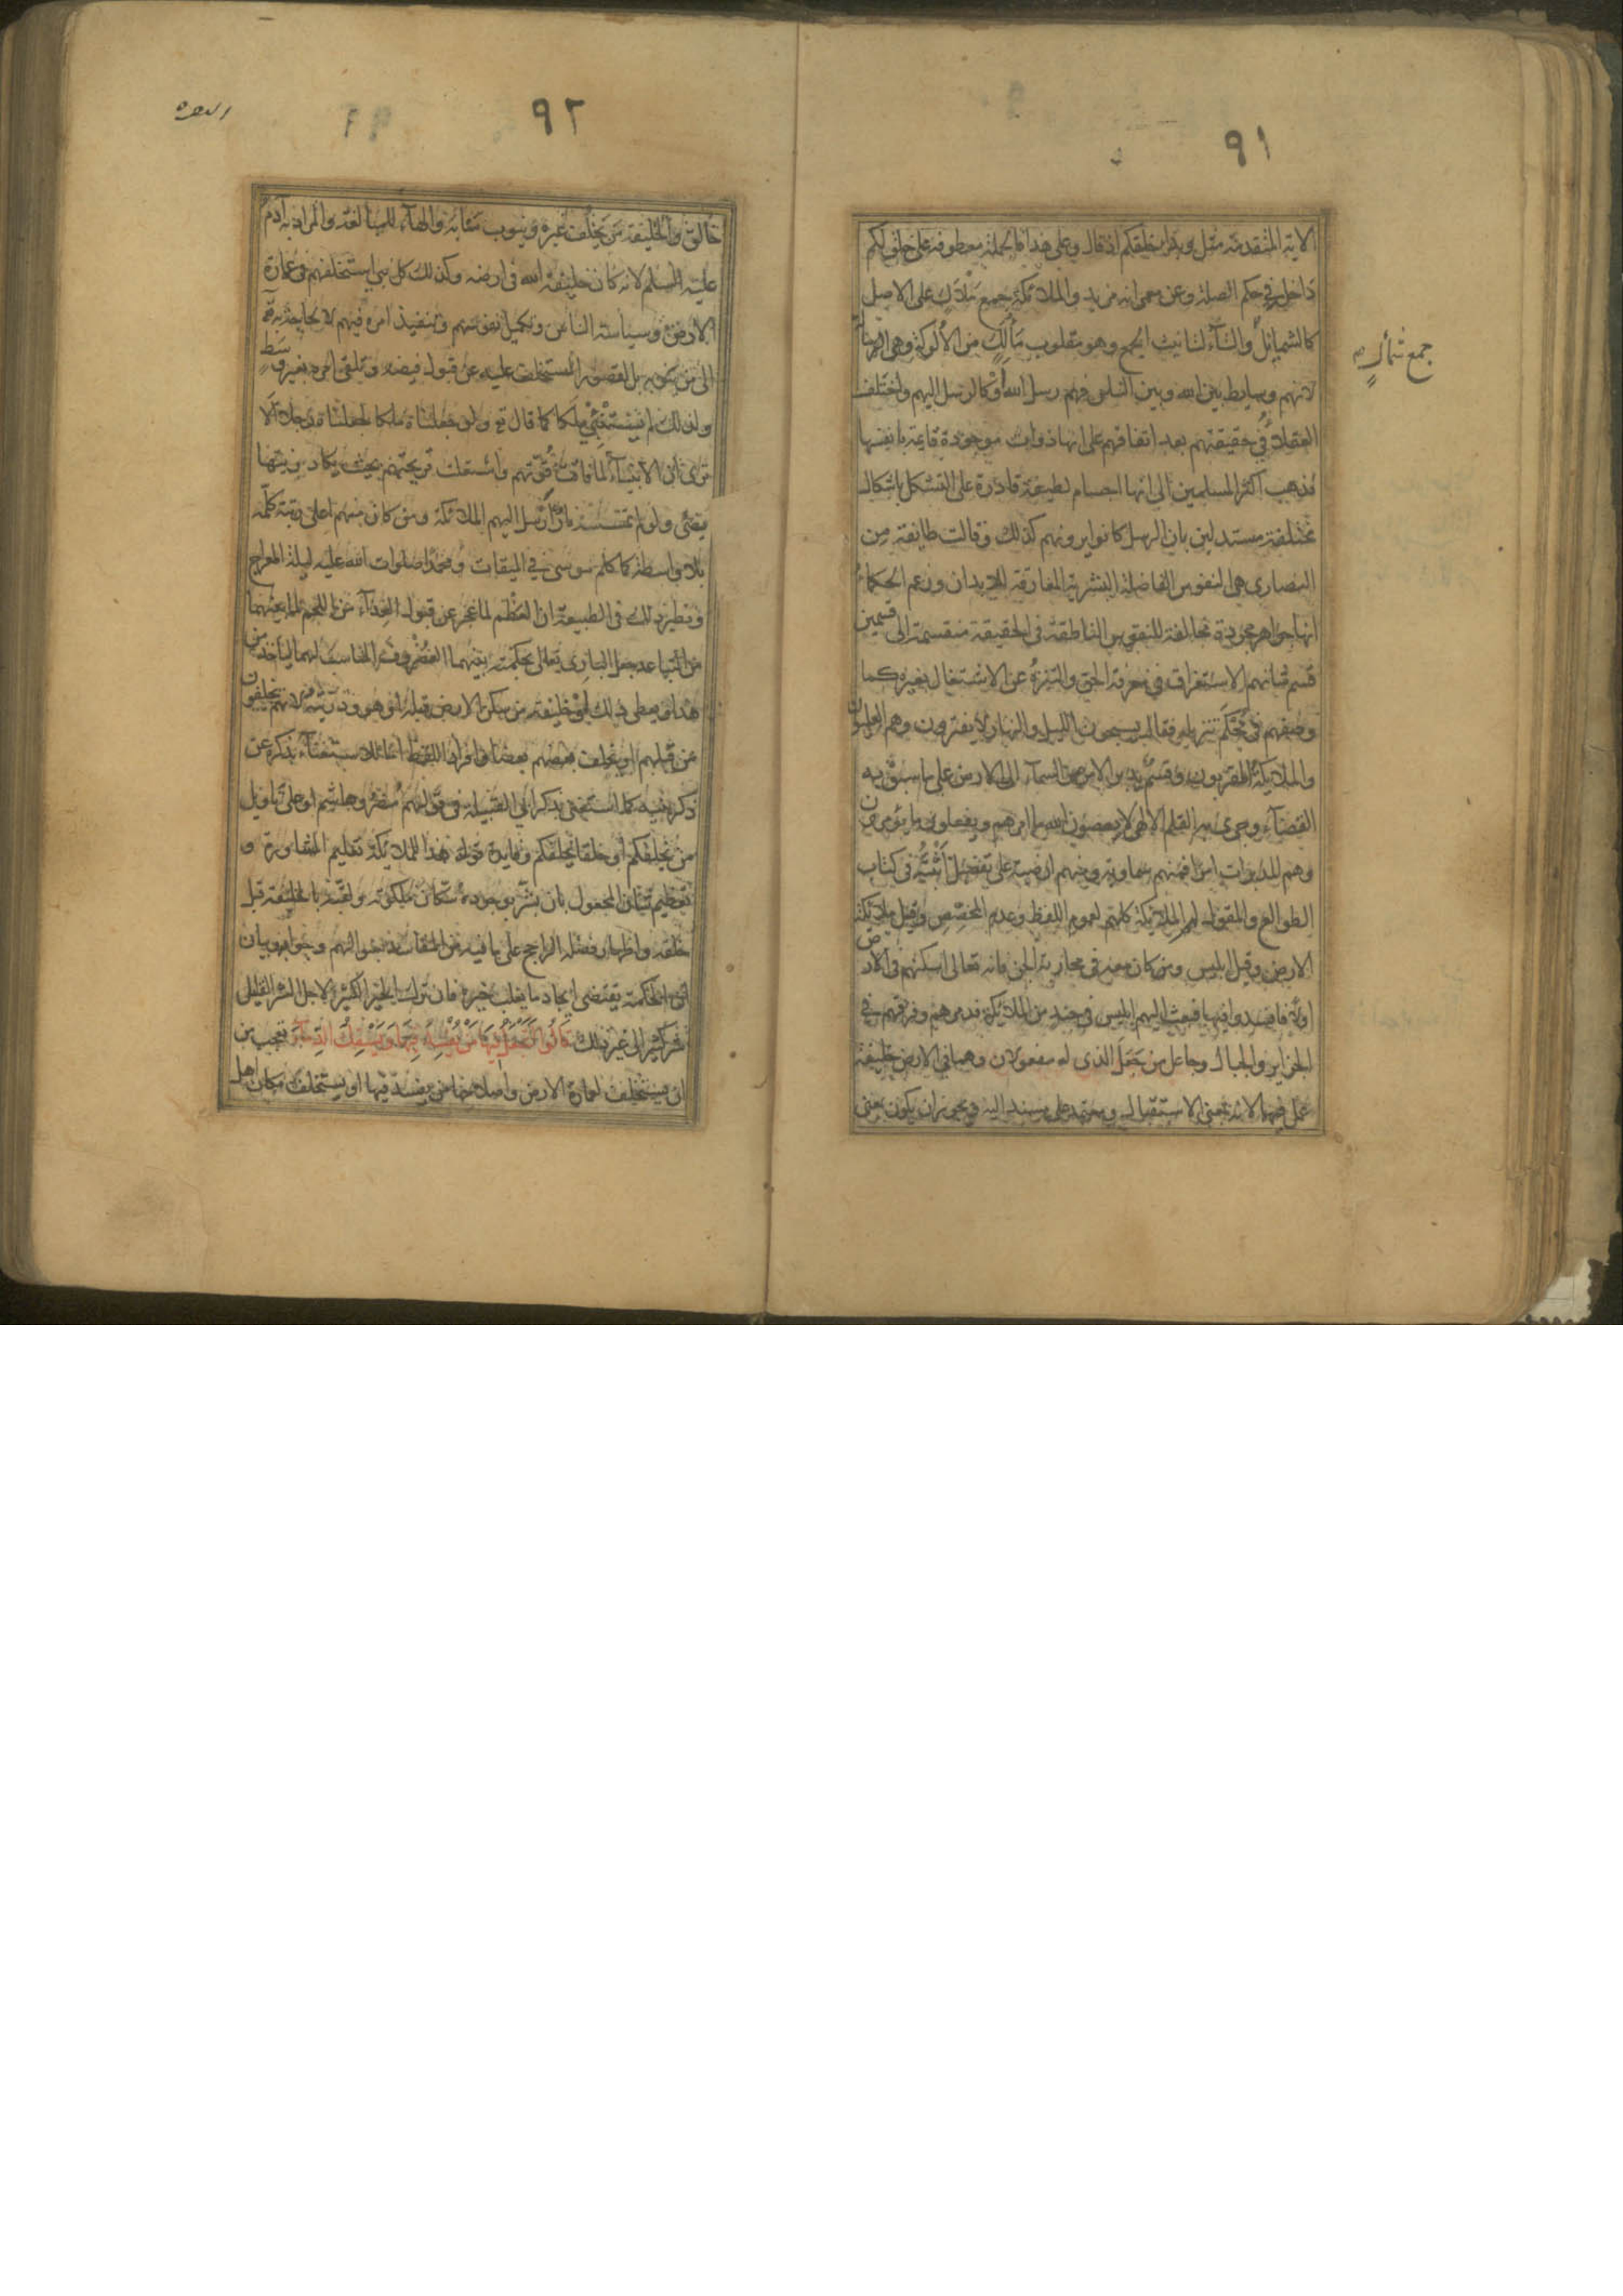 ٩١
الاية المتقدمة مثل وبدا خلقكم اذ قال وعلى هذا فالجملة معطوفة على خلق لكم
داخلة في حكم الصلة وعن معمر انه مزيد والملائكة جمع ملأك على الاصل
كالشمايل والتاء لتانيث الجمع وهو مقلوب مألك من الالوكة وهى الرسالة
جمع شمأل
لانهم وسايط بين الله وبين الناس فهم رسل الله او كالرسل اليهم واختلف
العقلاء في حقيقتهم بعد اتفاقهم على انها ذوات موجودة قايمة بانفسها
فذهب اكثر المسلمين الى انها اجسام لطيفة قادرة على التشكل باشكال
مختلفة مستدلين بان الرسل كانوا يرونهم كذلك وقالت طائفة من
النصارى هى النفوس الفاضلة البشرية المفارقة للابدان وزعم الحكماء
انها جواهر مجردة مخالفة للنفوس الناطقة في الحقيقة منقسمة الى قسمين
قسم شانهم الاستغراق في معرفة الحق والتنزه عن الاشتغال بغيره كما
وصفهم في محكم تنزيله فقال يسبحون الليل والنهار لا يفترون وهم العليون
والملائكة المقربون وقسم يدبر الامر من السماء الى الارض على ما سبق به
القضاء وجرى به القلم الالهى لا يعصون الله ما امرهم ويفعلون ما يؤمرون
وهم المدبرات امرا فمنهم سماوية ومنهم ارضية على تفصيل اثبته في كتاب
الطوالع والمقول لهم الملائكة كلهم لعموم اللفظ وعدم المخصص وقيل ملائكة
الارض وقيل ابليس ومن كان معه في محاربة الجن فانه تعالى اسكنهم في الارض
اولا فافسدوا فيها فبعث اليهم ابليس في جند من الملائكة فدمرهم وفرقهم في
الجزاير والجبال وجاعل من جعل الذى له مفعولان وهما في الارض خليفة
عمل فيهما لانه بمعنى الاستقبال ومعتمد على مسند اليه ويجوز ان يكون بمعنى
٩٢
خالق والخليفة من يخلف غيره وينوب منابه والهاء للمبالغة والمراد به آدم
عليه السلم لانه كان خليفة الله في ارضه وكذلك كل نبي استخلفهم في عمارة
الارض وسياسة الناس وتكميل نفوسهم وتنفيذ امره فيهم لا لحاجة به تع
الى من ينوبه بل لقصور المستخلف عليه عن قبول فيضه وتلقى امره بغير وسط
ولذلك لم يستنبئ ملكا كما قال تع ولو جعلناه ملكا لجعلناه رجلا الا
ترى ان الانبياء لما فاقت قوتهم واشتعلت قريحتهم بحيث يكاد زيتها
يضئ ولو لم تمسسه نار ارسل اليهم الملائكة ومن كان منهم اعلى رتبة كلمه
بلا واسطة كما كلم موسى في الميقات ومحمدا صلوات الله عليه ليلة المعراج
ونظير ذلك في الطبيعة ان العظم لما عجز عن قبول الغذاء من اللحم لما بينهما
من التباعد جعل البارى تعالى بحكمته بينهما الغضروف المناسب لهما لياخذ من
هذا ويعطى ذلك او خليفة من سكن الارض قبله او هو وذريته لانهم يخلفون
من قبلهم او يخلف بعضهم بعضا وافراد اللفظ اما للاستغناء بذكره عن
ذكر بنيه كما استغنى بذكر ابى القبيلة في قولهم مضر وهاشم او على تاويل
من يخلفكم او خلقا يخلفكم وفايدة قوله هذا للملائكة تعليم المشاورة و
تعظيم شان المجعول بان بشر بوجوده سكان ملكوته ولقبه بالخليفة قبل
خلقه واظهار فضله الراجح على ما فيه من المفاسد بسؤالهم وجوابه وبيان
ان الحكمة يقتضى ايجاد ما يغلب خيره فان ترك الخير الكثير لاجل الشر القليل
شر كثير الى غير ذلك قَالُوا أَتَجْعَلُ فِيهَا مَنْ يُفْسِدُ فِيهَا وَيَسْفِكُ الدِّمَاءَ تعجب من
ان يستخلف لعمارة الارض واصلاحها من يفسد فيها او يستخلف مكان اهل